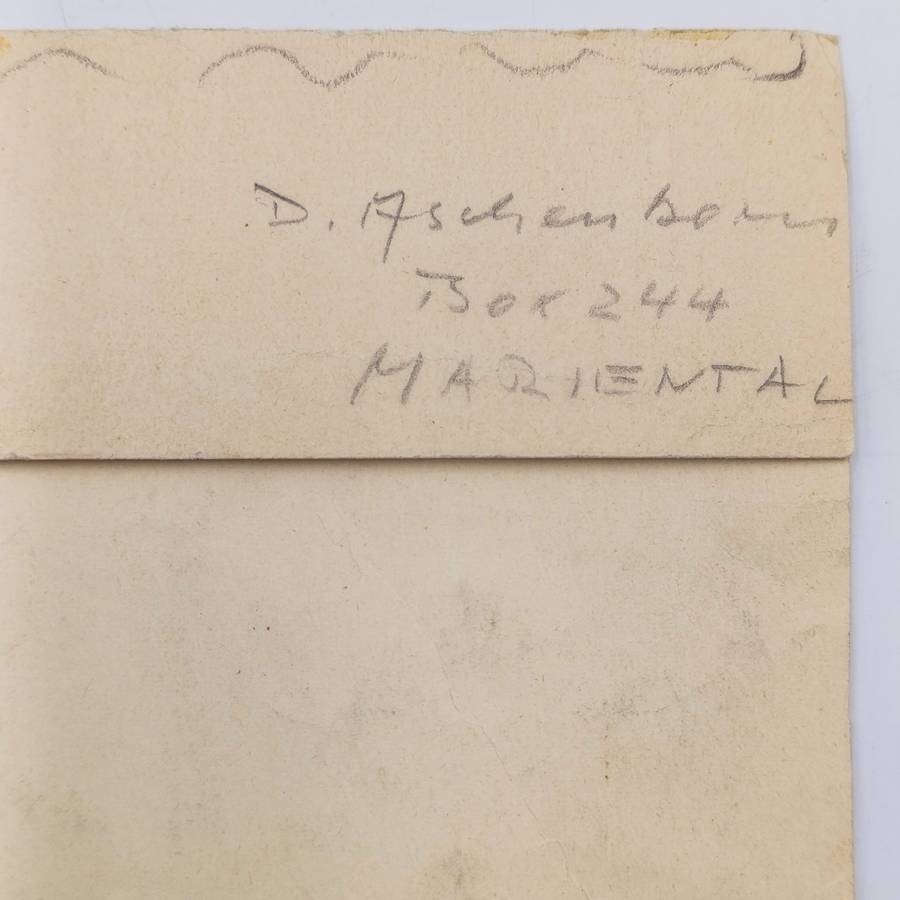 D. Aschenborn
Box 244
MARIENTAL